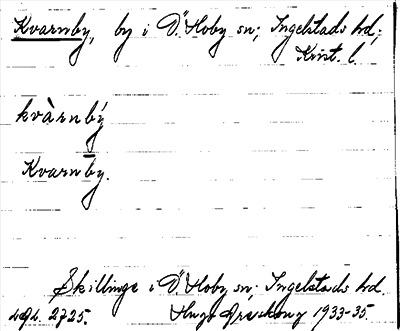 Kvarnby, by i Ö. Hoby sn; Ingelstads hd;
Krist. l.
kvàrnbý
Kvarnby.
Skillinge i Ö. Hoby sn; Ingelstads hd.
2725. Hugo Areskoug 1933-35.